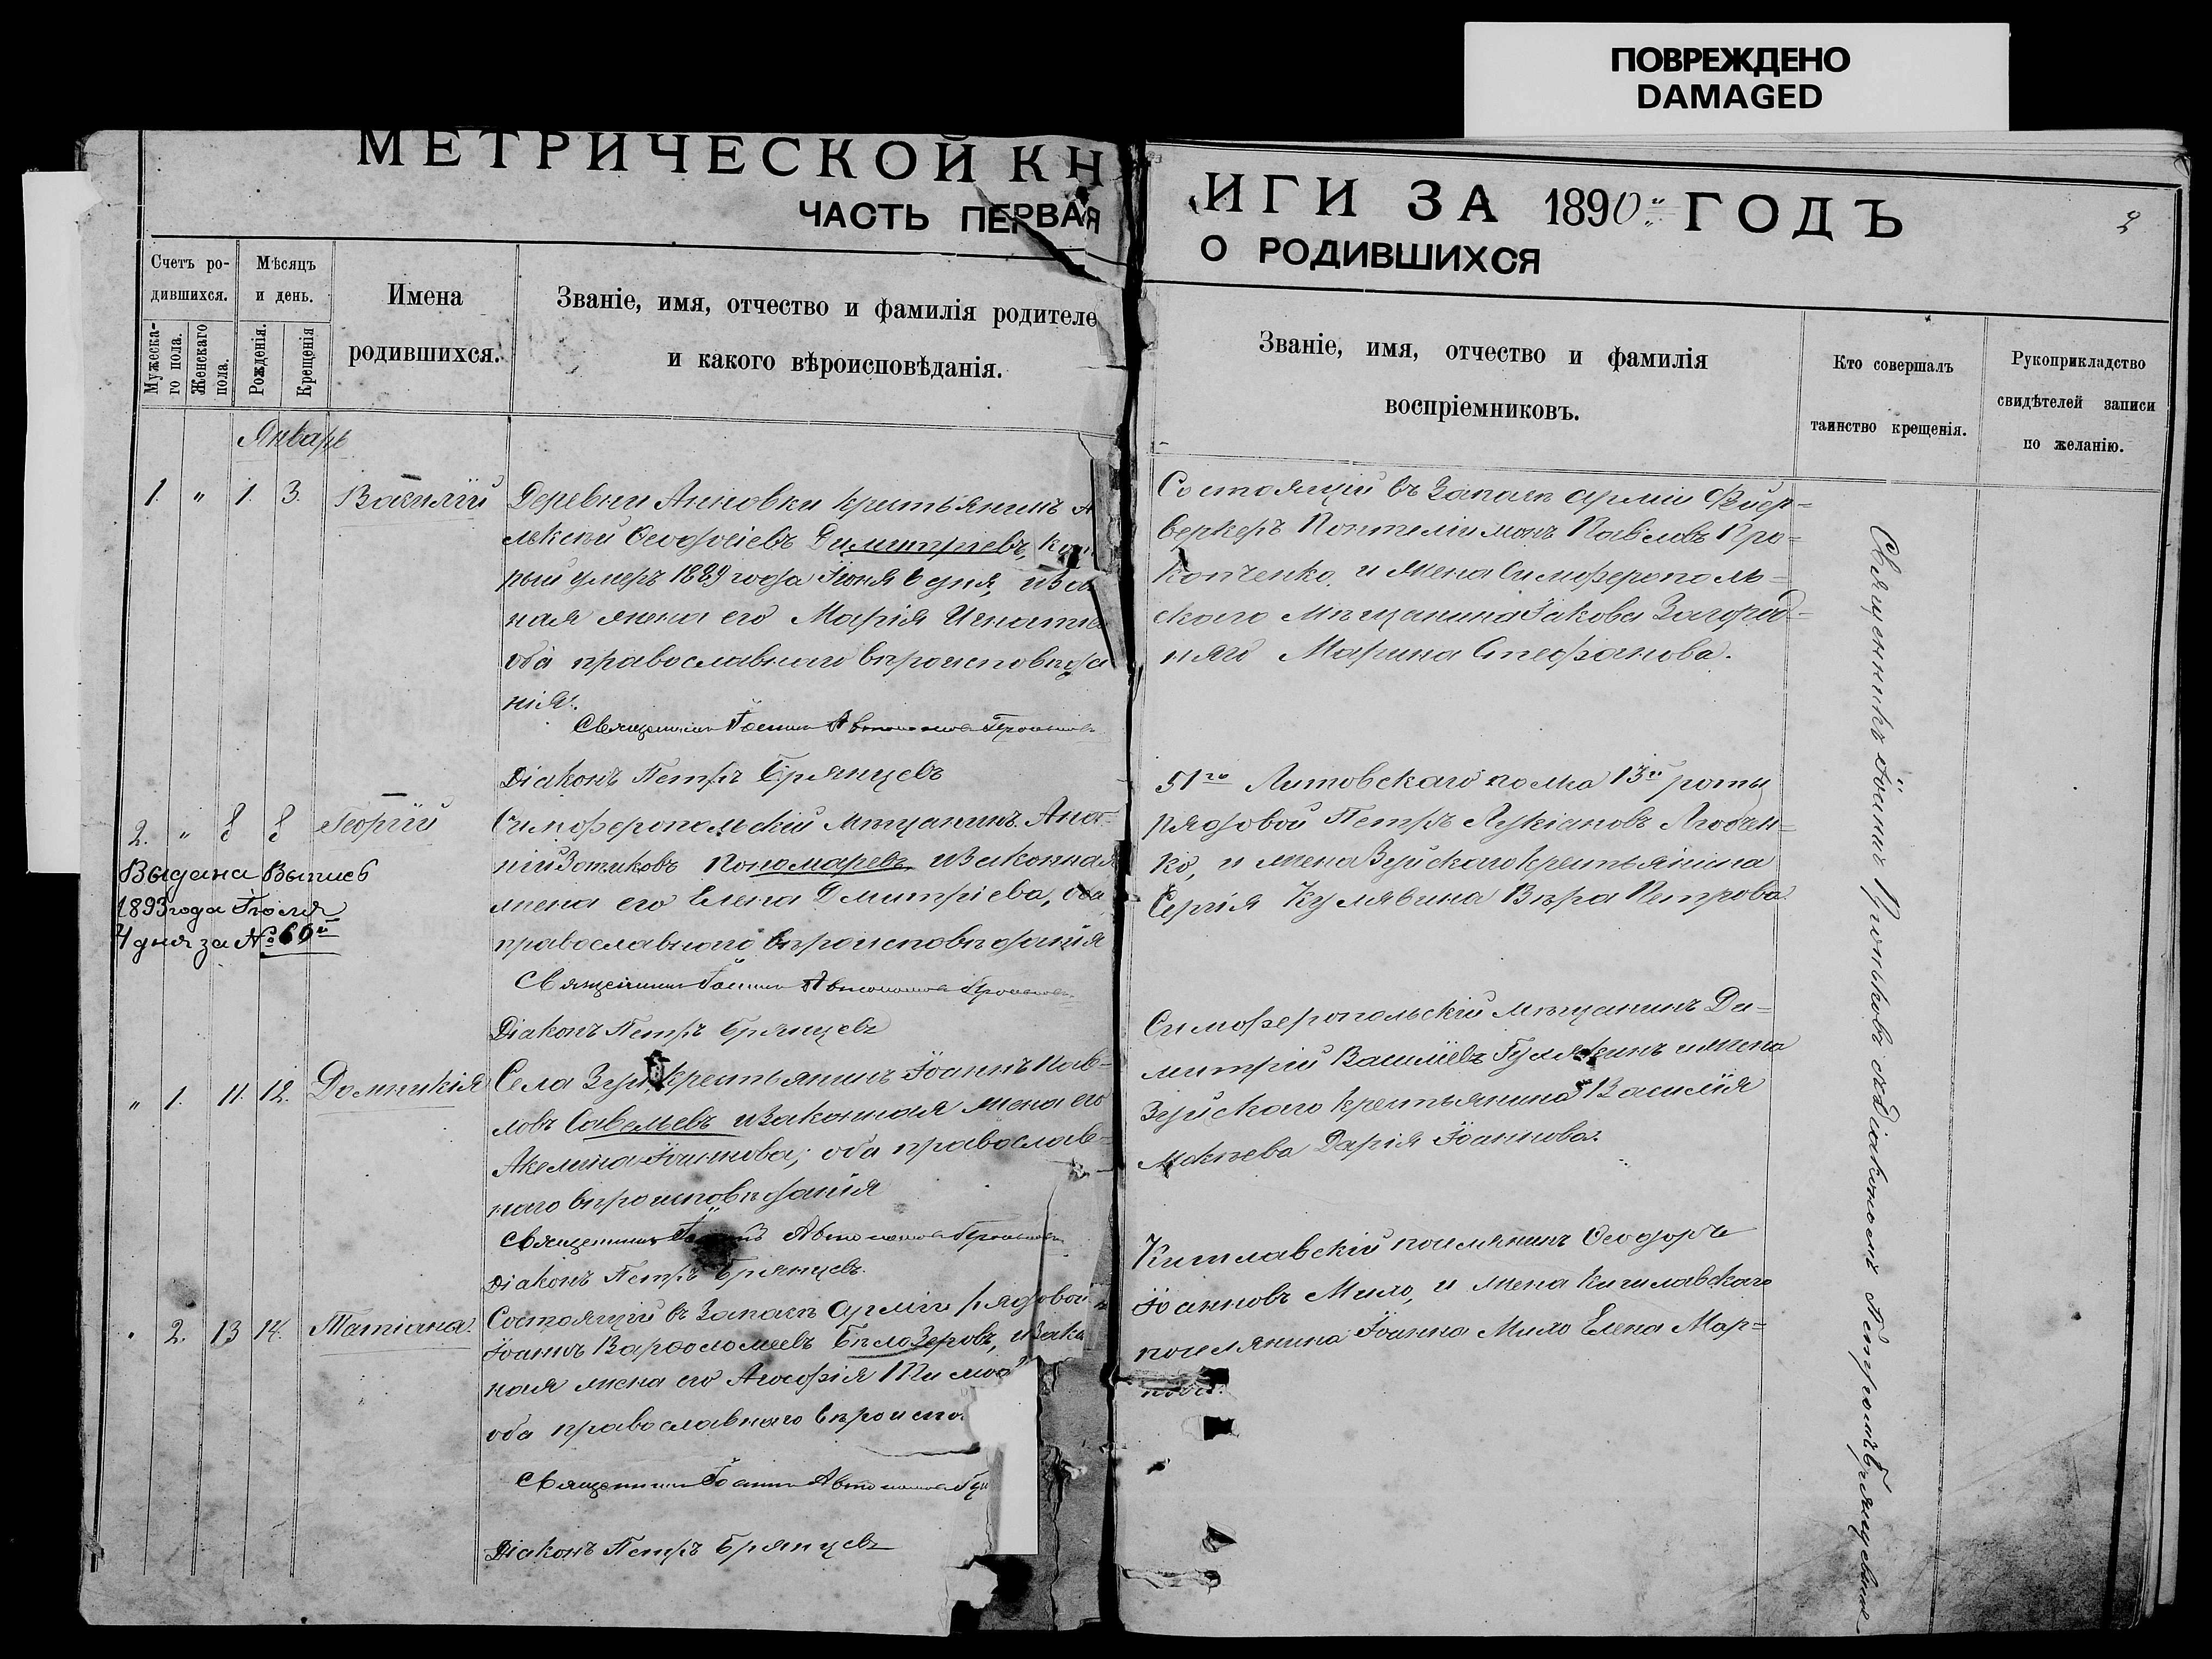 ПОВРЕЖДЕНО
DAMAGED
МЕТРИЧЕСКОЙ КН
ИГИ ЗА 1890 ГОДЪ
ЧАСТЬ ПЕРВАЯ
О РОДИВШИХСЯ
2
Счетъ ро-
дившихся.
Мужеска-
го пола.
Женскаго
пола.
Мѣсяцъ
и день.
Рожденія.
Крещенія
Имена
родившихся.
Званіе, имя, отчество и фамилія родителе
и какого вѣроисповѣданія.
Званіе, имя, отчество и фамилія
воспріемниковъ.
Кто совершалъ
таинство крещенія.
Рукоприкладство
свидѣтелей записи
по желанію.
Январь
1. " 1. 3. Василій
Деревни Анновки крестьянинъ
Ѳеодосіевъ Димитріевъ,
рый умеръ 1889 года Іюня 6 дня,
ная жена его Марія
оба православнаго вѣроисповѣда
нія.
Священникъ Іоаннъ Автономовъ Проньковъ
Діаконъ Петръ Брянцевъ
Состоящій въ Запасѣ арміи Фейер-
веркеръ Понтелиимонъ Павловъ Про-
копченко, и жена Симферополь-
скаго мѣщанина Іакова Загород-
няго Марина Стефанова.
2. " 8 8 Георгій
Симферопольскій мѣщанинъ
Зотиковъ Пономаревъ и законная
жена его Елена Дмитріева, оба
православнаго вѣроисповѣданія
Священникъ Іоаннъ Автономовъ Проньковъ
Діаконъ Петръ Брянцевъ
Выдана Выпись
1893 года Іюля
4 дня за № 60й
51го Литовскаго полка 13й роты
рядовой Петръ Лукіановъ Любчен-
ко, и жена Зуйскаго крестьянина
Сергія Кумявина Вѣра Петрова.
" 1. 11. 12. Домникія
Села Зуи крестьянинъ Іоаннъ Пав-
ловъ Савельевъ и законная жена его
Акелина Іоаннова, оба православ-
наго вѣроисповѣданія
Священникъ Автономовъ Проньковъ
Діаконъ Петръ Брянцевъ.
Симферопольскій мѣщанинъ Ди-
митрій Василіевъ и жена
Зуйскаго крестьянина Василія
Дарія Іоаннова.
" 2. 13 14. Татіана.
Состоящій въ Запасѣ арміи рядовой
Іоаннъ Варѳоломеевъ Бѣлозеровъ, и зако
ная жена его
оба православнаго вѣроиспо
Священникъ Іоаннъ Автономовъ
Діаконъ Петръ Брянцевъ
Кишлавскій поселянинъ Ѳеодоръ
Іоанновъ Мило, и жена Кишлавскаго
поселянина Іоанна Мило Елена Мар-
Священникъ Іоаннъ Проньковъ съ Діакономъ Петромъ Брянцевымъ